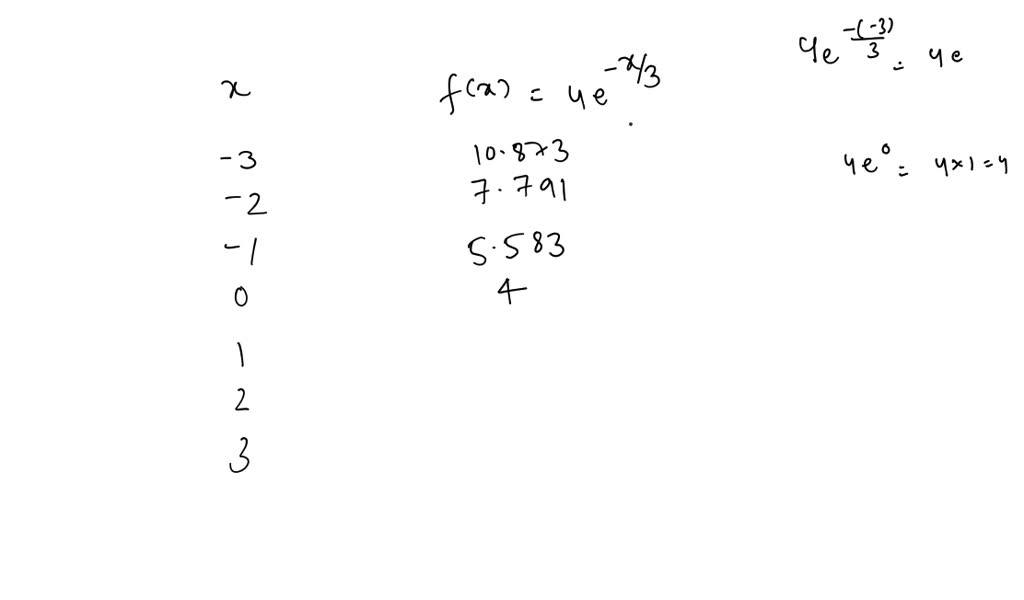 x f(x) = 4e^{-x/3}
-3 10.873
-2 7.791
-1 5.583
0 4
1
2
3
4e^{-(-3)/3} = 4e
4e^0 = 4×1=4